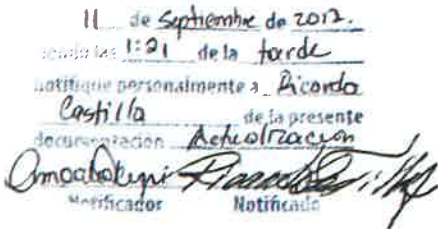 11 de Septiembre de 2012.
siendo las 1:21 de la tarde
notifique personalmente a Ricardo
Castillo de la presente
documentacion Actualización
Notificador Notificado